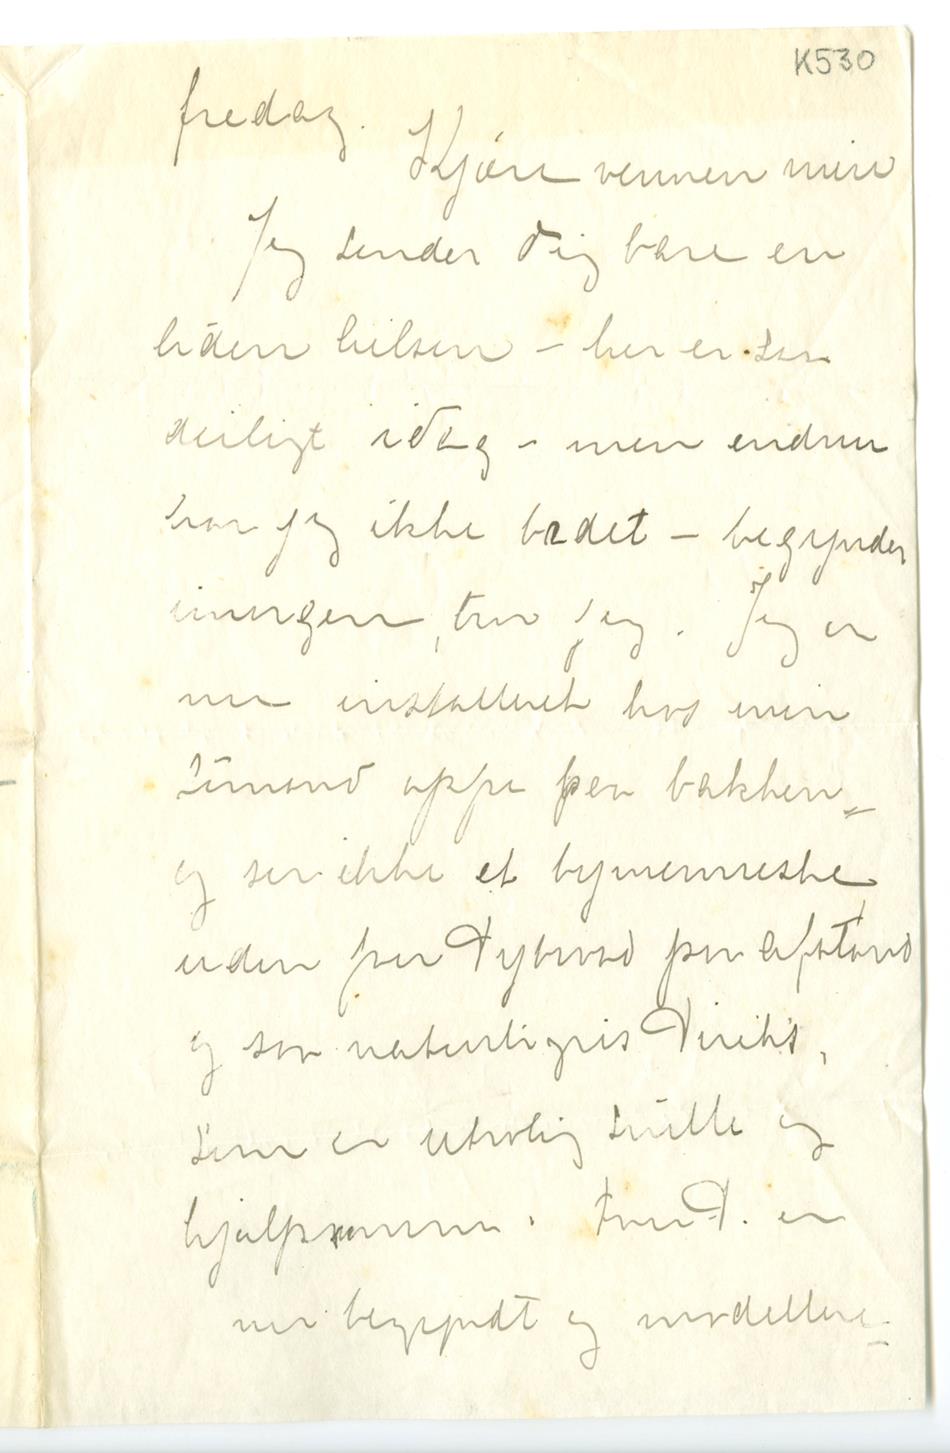 K530
fredag.
Kjære vennen min
Jeg sender dig bare en
liden hilsen – her er saa
deiligt idag – men endnu
har jeg ikke badet – begynder
imorgen, tror jeg. Jeg er
nu installeret hos min
simand oppe paa bakken –
og ser ikke et bymenneske
uden fru Dybwad paa afstand
og saa naturligvis Diriks,
som er utrolig snille og
hjælpsomme. Fru D. er
nu begyndt og modellere –